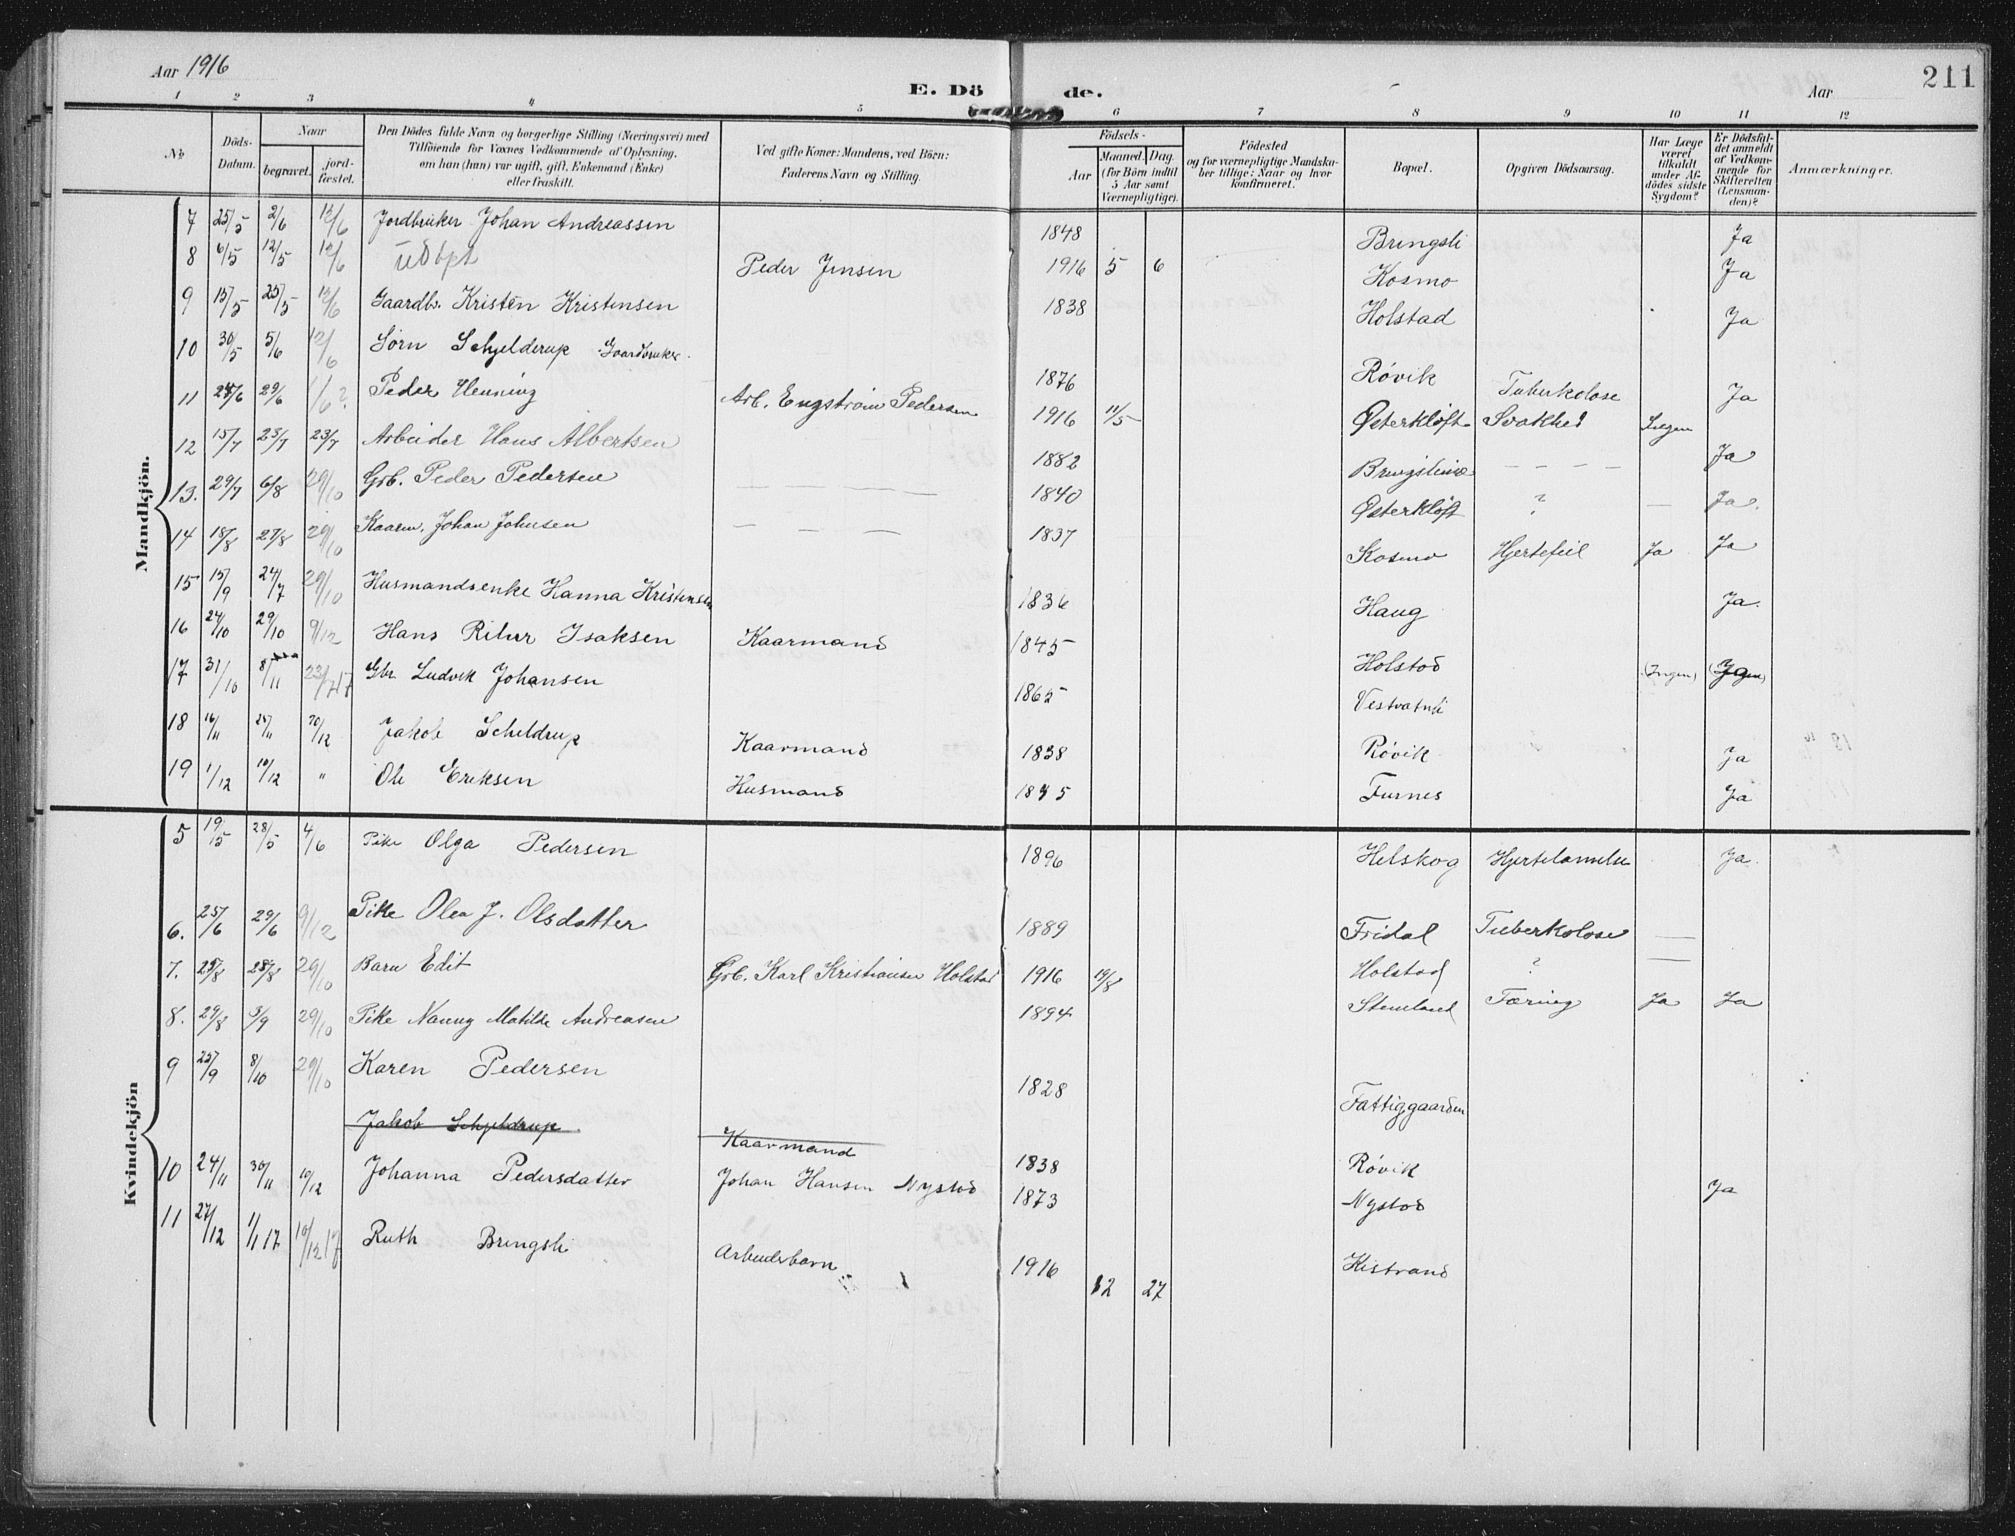 Aar 1916
E. Dö de.
Aar
211
1 2 3 4 5 6 7 8 9 10 11 12
№
Döds-Datum.
Naar
begravet.
jord-fæstet.
Den Dödes fulde Navn og borgerlige Stilling (Næringsvei) med Tilföiende for Voxnes Vedkommende af Oplysning, om han (hun) var ugift, gift, Enkemand (Enke) eller fraskilt.
Ved gifte Koner: Mandens, ved Börn: Faderens Navn og Stilling.
Födsels-
Aar
Maaned. Dag. (for Börn indtil 5 Aar samt Værnepligtige).
Födested og for værnepligtige Mandskaber tillige: Naar og hvor konfirmeret.
Bopæl.
Opgiven Dödsaarsag.
Har Læge været tilkaldt under Afdödes sidste Sygdom?
Er Dödsfaldet anmeldt af Vedkommende for Skifteretten (Lensmanden)?
Anmærkninger.
Mandkjön.
7 25/5 2/6 12/6 Jordbruker Johan Andreassen 1848 Bringsli Ja
8 6/5 12/5 12/6 udöpt Peder Jensen 1916 5 6 Kosmo Ja
9 15/5 25/5 12/6 Gaardbr. Kristen Kristensen 1838 Holstad Ja
10 30/5 5/6 12/6 Sörn Schjelderup Gaardbruker. 1876 Rövik Tuberkolose Ja
11 24/6 29/6 1/6? Peder Henning Arb. Engström Pedersen 1916 11/5 Østerkløft Svakhed Ingen
12 15/7 23/7 23/7 Arbeider Hans Albertsen 1882 Ja
13. 29/7 6/8 29/10 Grb. Peder Pedersen 1840 Østerkløft ? — Ja.
14 18/8 27/8 29/10 Kaarm. Johan Johnsen 1837 Kosmo Hjertefeil Ja Ja
15 15/9 24/7 29/10 Husmandsenke Hanna Kristensen 1836 Haug Ja.
16 24/10 29/10 9/12 Hans Isaksen Kaarmand 1845 Holstad (Ingen)
17 31/10 8/11 23/7 17 Gbr. Ludvik Johansen 1865 Vestvatnli
18 16/11 25/11 10/12 Jakob Scheldrup Kaarmand 1838 Rövik Ja
19 1/12 10/12 " Ole Eriksen Husmand 1845 Furnes Ja
Kvindekjön
5 19/5 28/5 4/6 Pike Olga Pedersen 1896 Helskog Hjertelammelse Ja.
6. 25/6 29/6 9/12 Pike Olea J. Olsdatter 1889 Fridal Tuberkolose —
7. 25/8 28/8 29/10 Barn Edit Grb. Karl Kristiansen Holstad 1916 19/8 Holstad ? —
8. 29/8 3/9 29/10 Pike Nanny Matilde Andreasen 1894 Stemland Tæring Ja Ja
9 25/9 8/10 29/10 Karen Pedersen 1828 Fattiggaarden
Jakob Schjeldrup Kaarmand 1838 Rövik
10 24/11 30/11 10/12 Johanna Pedersdatter Johan Hansen Nystad 1873 Nystad Ja
11 27/12 1/1 17 10/12 17 Ruth Bringsli Arbeiderbarn 1916 12 27 Kistrand